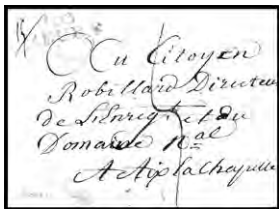 Au Citoyen
Robillard Directeur
de L'Enregt et du
Domaine Nal
A Aix la Chapelle